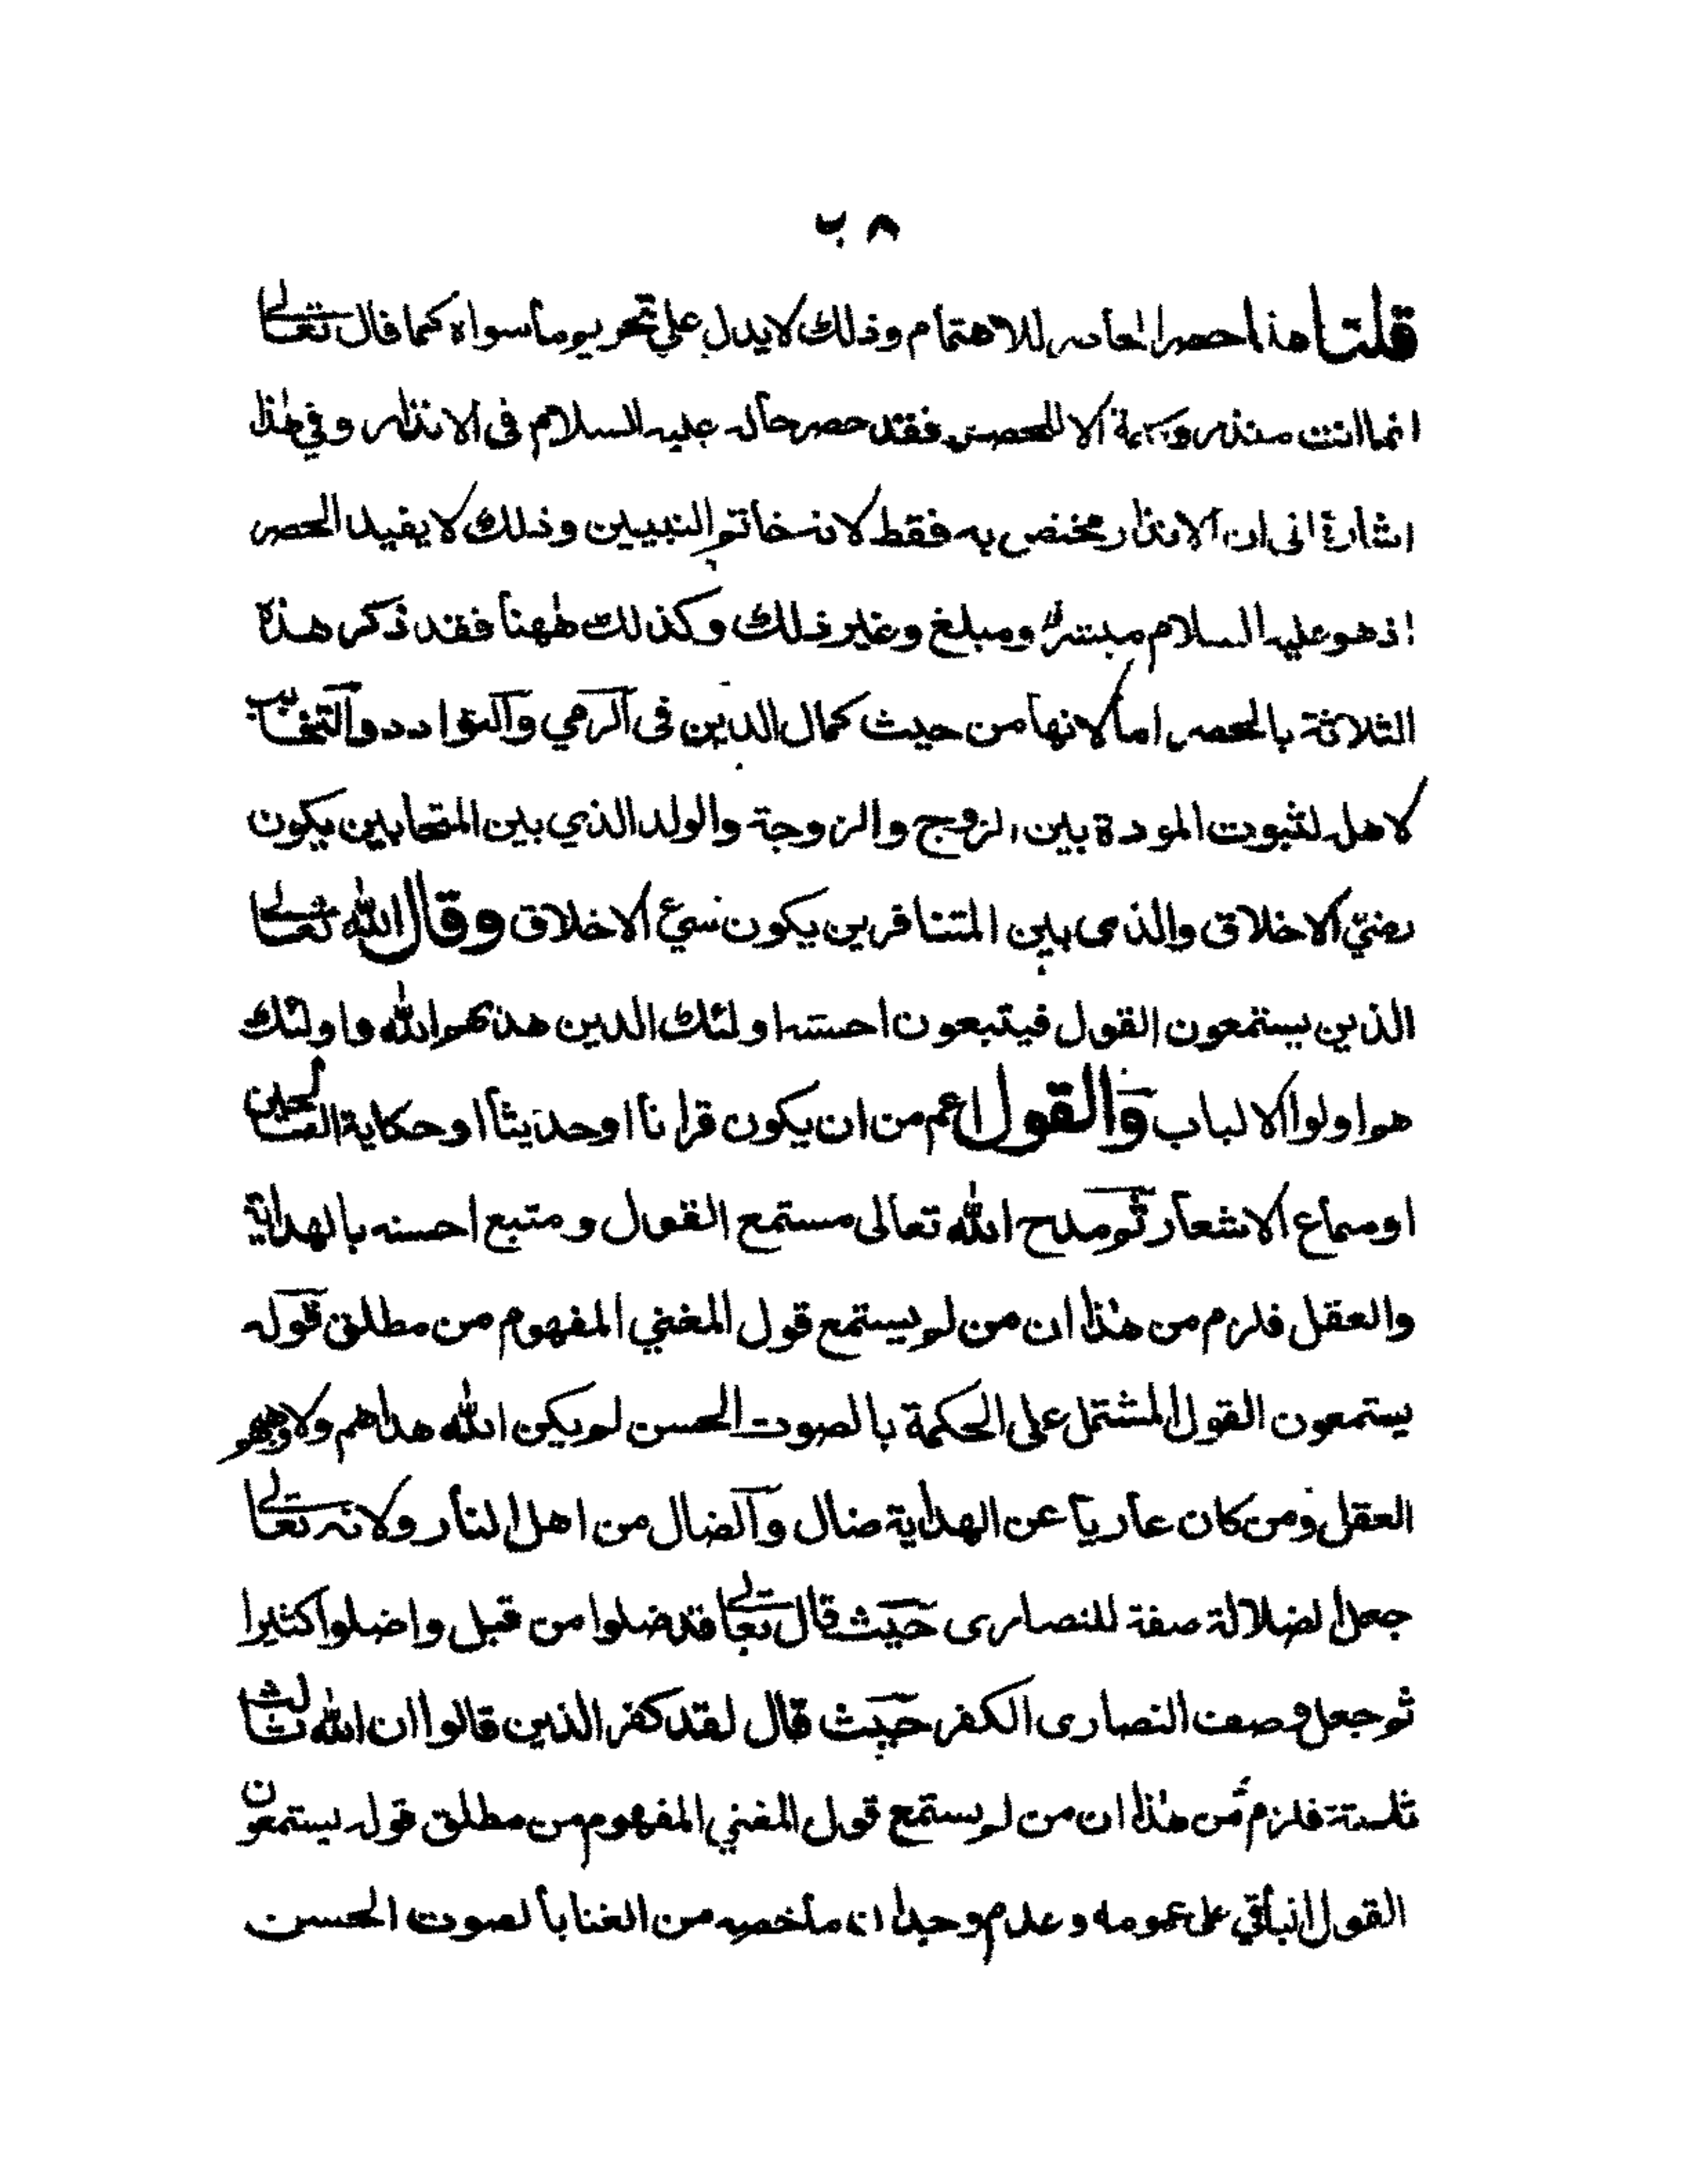 ٨ ب
قلنا هذا حصر الخاص للاهتمام وذلك لا يدل علي تحريم ما سواه كما قال تعالى
انما انت منذر وكلمة الا للحصر فقد حصر حاله عليه السلام فى الانذار وفي هذا
اشارة الى ان الانذار مختص به فقط لانه خاتم النبيين وذلك لا يفيد الحصر
اذ هو عليه السلام مبشر ومبلغ وغير ذلك وكذلك ههنا فقد ذكر هذه
الثلاثة بالحصر اما لانها من حيث كمال الدين فى الرمي والتوادد والتحابب
لاهله لثبوت المودة بين الزوج والزوجة والولد الذي بين المتحابين يكون
رضيّ الاخلاق والذى بين المتنافرين يكون سيئ الاخلاق وقال الله تعالى
الذين يستمعون القول فيتبعون احسنه اولئك الدين هديهم الله واولئك
هم اولوا الالباب والقول اعم من ان يكون قرانا او حديثا او حكاية الصالحين
او سماع الاشعار ثم مدح الله تعالى مستمع القول ومتبع احسنه بالهداية
والعقل فلزم من هذا ان من لم يستمع قول المغني المفهوم من مطلق قوله
يستمعون القول المشتمل على الحكمة بالصوت الحسن لم يكن الله هداهم ولا وهبهم
العقل ومن كان عاريا عن الهداية ضال والضال من اهل النار ولانه تعالى
جعل الضلالة صفة للنصارى حيث قال تعالى قد ضلوا من قبل واضلوا كثيرا
ثم جعل وصف النصارى الكفر حيث قال لقد كفر الذين قالوا ان الله ثالث
ثلثة فلزم من هذا ان من لم يستمع قول المغني المفهوم من مطلق قوله يستمعون
القول الباقي على عمومه وعدم وجدان ما خصه من الغنا بالصوت الحسن